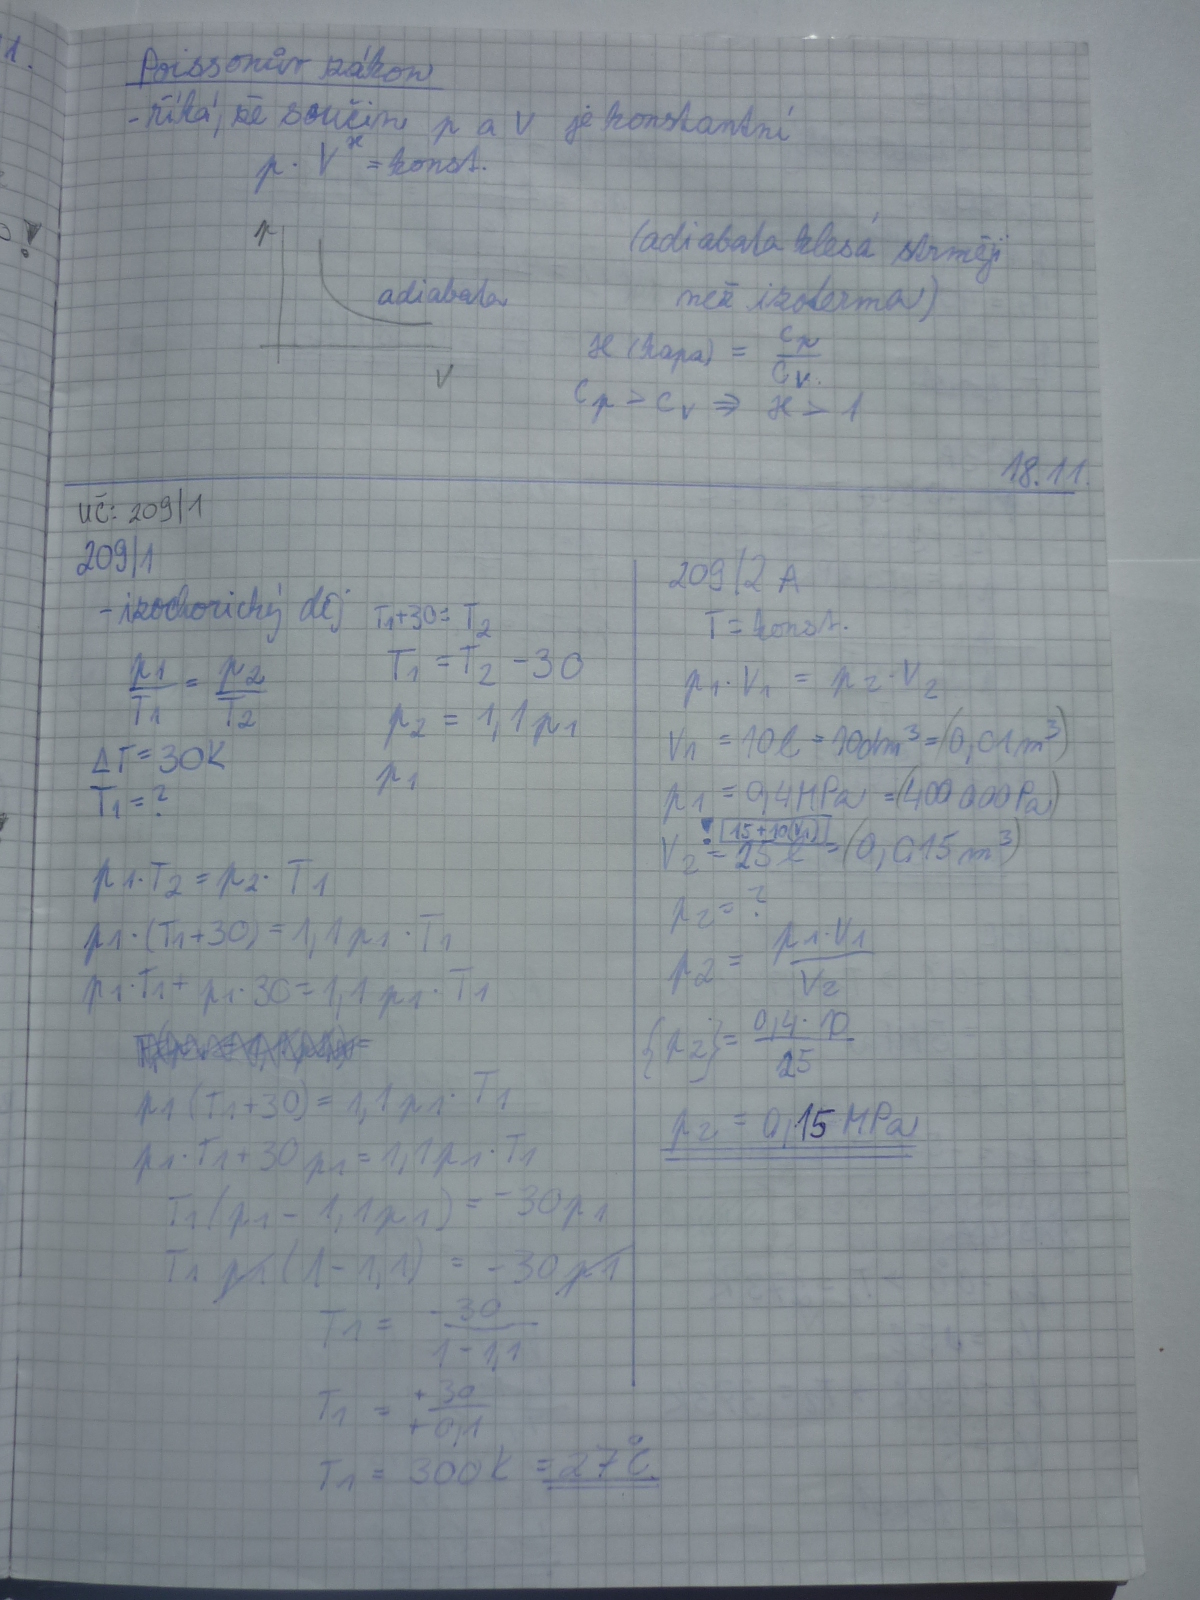 1.
Poissonův zákon
-říká, že součin p a V je konstantní
p · V^ϰ = konst.
p
adiabata
V
(adiabata klesá strměji
než izoterma)
ϰ (kapa) = cp/cv.
cp > cv ⇒ ϰ > 1
18.11.
UČ: 209/1
209/1
-izochorický děj
T1+30 = T2
p1/T1 = p2/T2
T1 = T2 -30
p2 = 1,1p1
ΔT = 30K
p1
T1 = ?
p1·T2 = p2· T1
p1·(T1+30) = 1,1p1·T1
p1·T1+ p1·30 = 1,1 p1·T1
p1(T1+30) = 1,1p1·T1
p1·T1+30p1 = 1,1p1·T1
T1(p1 - 1,1p1) = -30p1
T1 p1(1-1,1) = -30p1
T1 = -30/1-1,1
T1 = +30/+0,1
T1 = 300K = 27°C
209/2 A
T = konst.
p1·V1 = p2·V2
V1 = 10l = 10dm³ = (0,01m³)
p1 = 0,4MPa = (400 000Pa)
! [15+10(V1)]
V2 = 25 l = (0,015m³)
p2 = ?
p2 = p1·V1/V2
{p2} = 0,4·10/25
p2 = 0,15 MPa